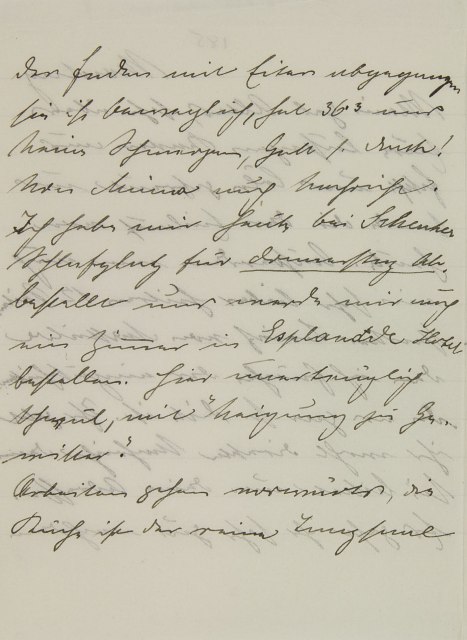 der Faden mit Eiter abgegangen
sie ist beweglich, hat 36·3 und
keine Schmerzen, Gott s. Dank!
Von auch Nachricht.
Ich habe mir heute bei Schenker
Schlafplatz für donnerstag Ab.
bestellt und werde mir auch
ein Zimmer im Esplanade Hotel
bestellen. Hier unerträglich
schwül, mit "Neigung zu Ge-
witter."
Arbeiten gehen vorwärts, die
ist der reine